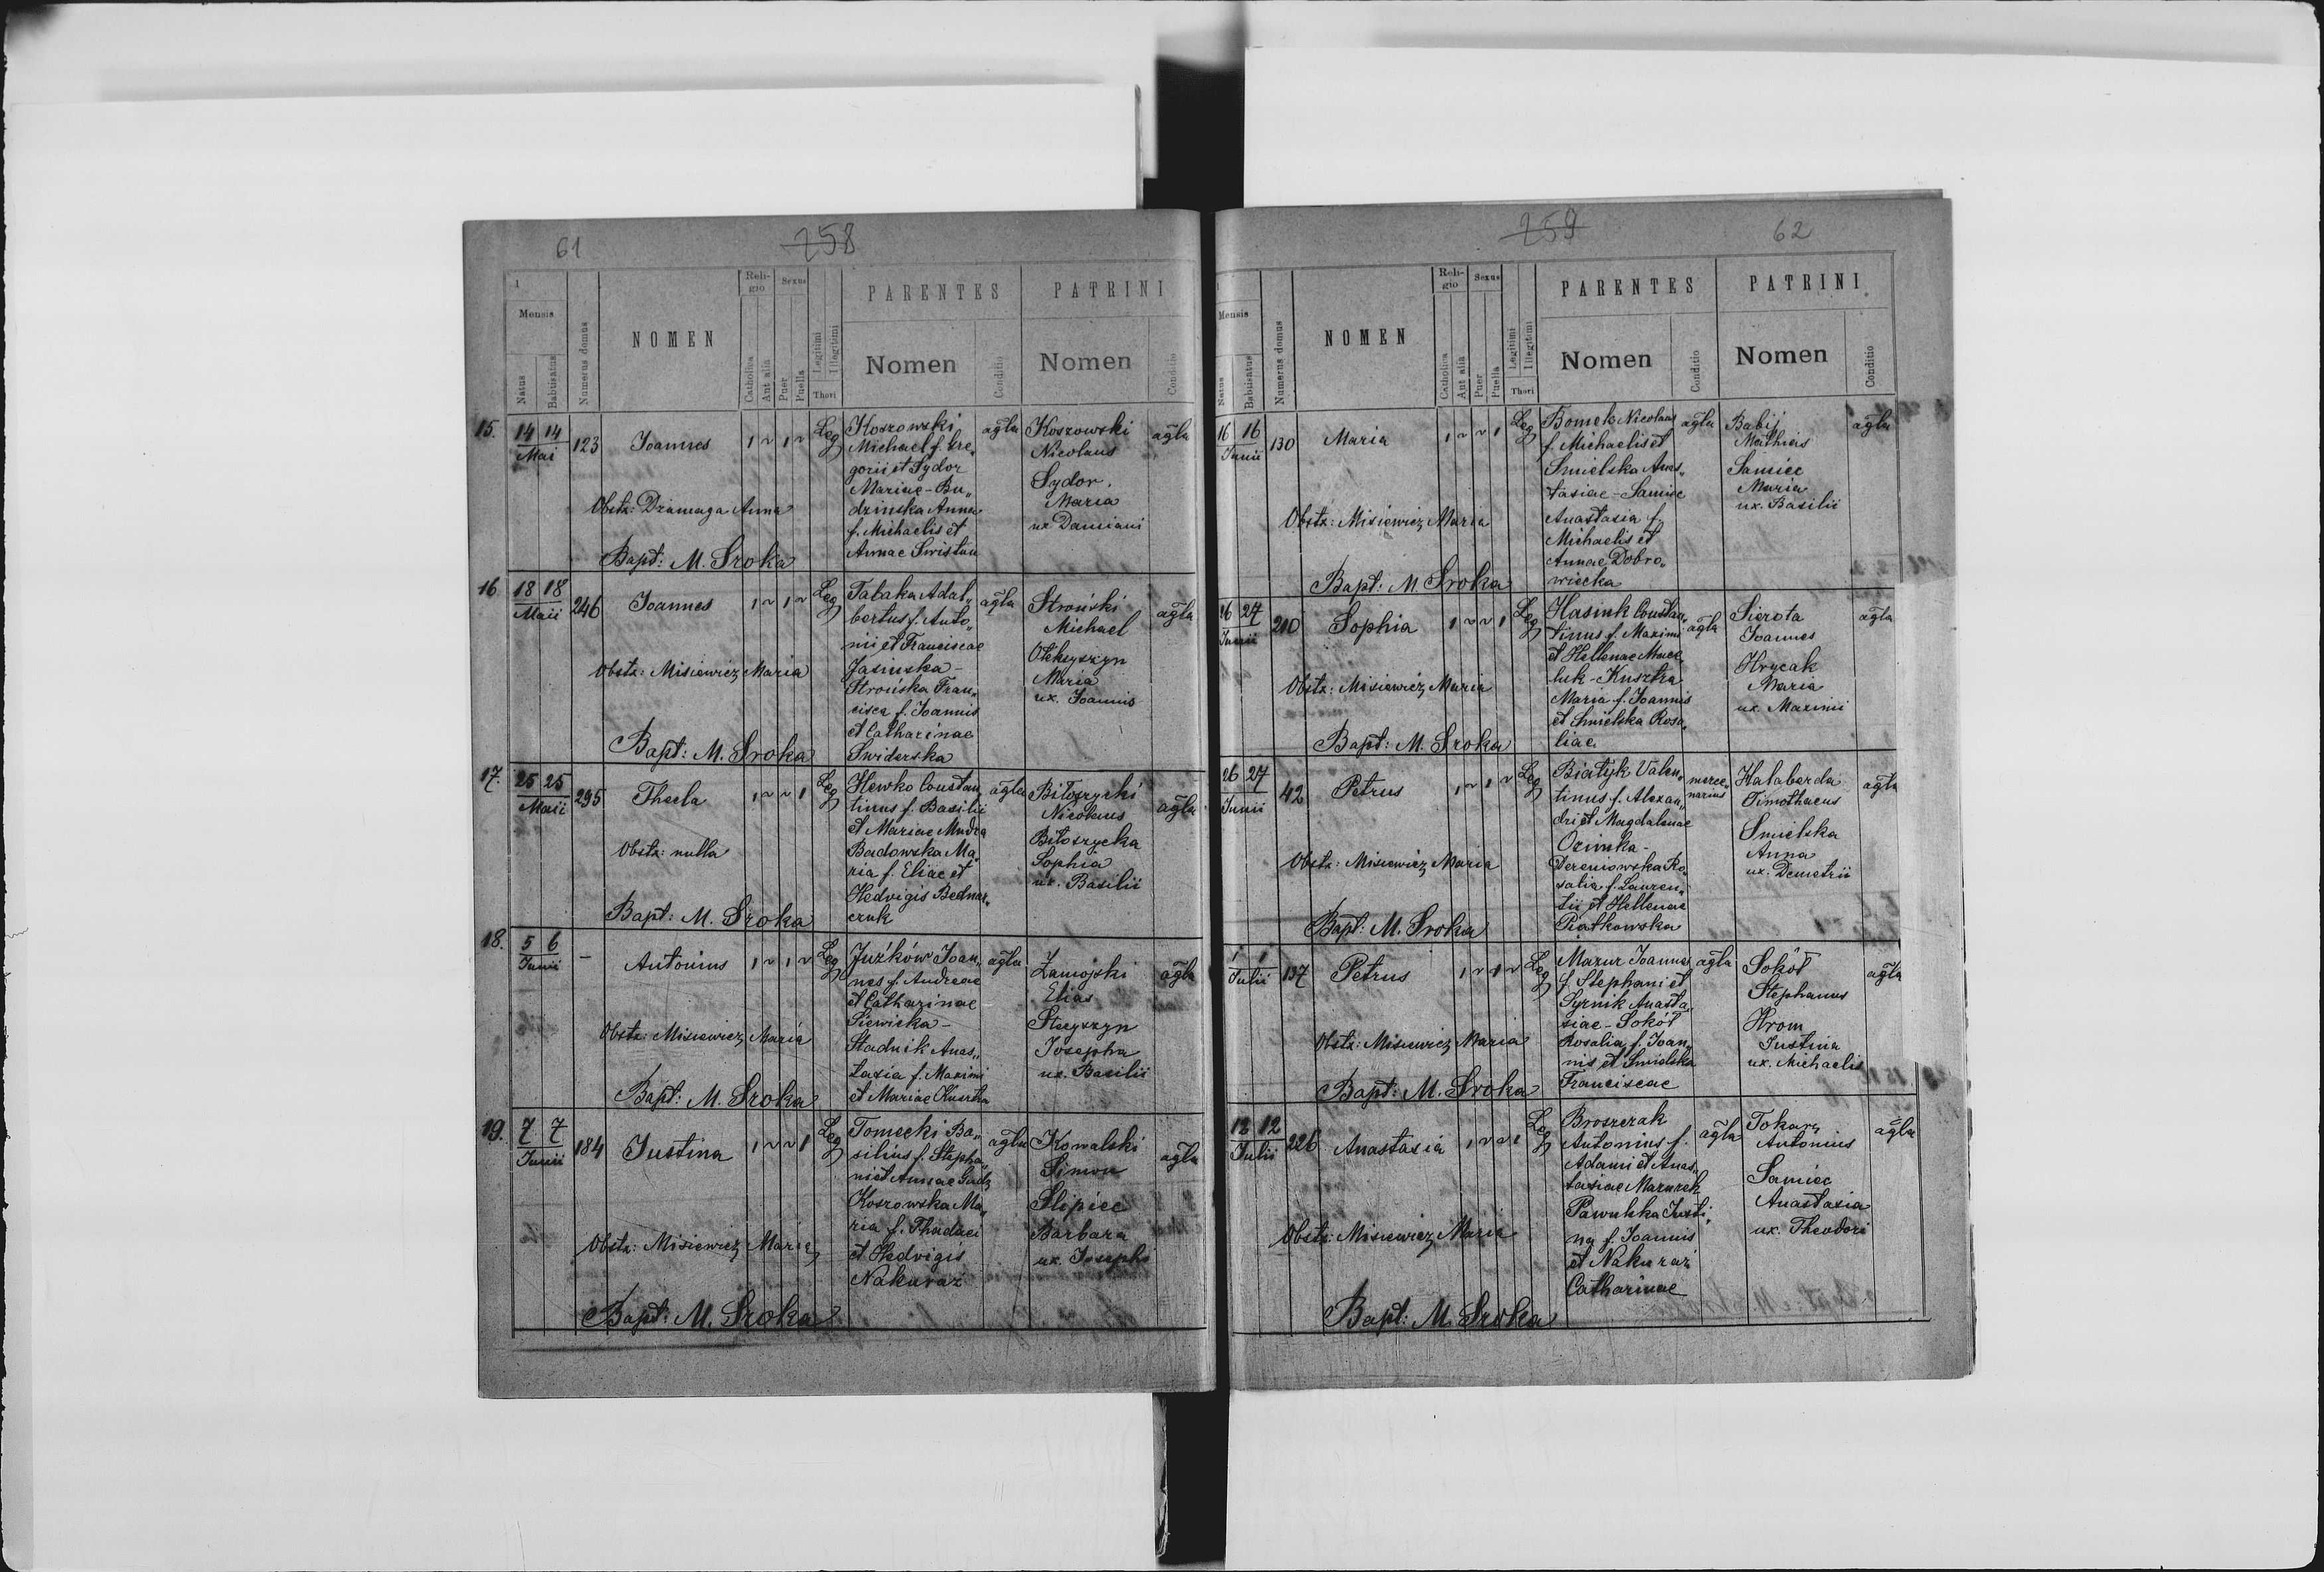 61
258
1
Mensis
Natus
Babtisatus
Numerus domus
NOMEN
Reli-
gio
Catholica
Aut alia
Sexus
Puer
Puella
Legitimi
Illegitimi
Thori
PARENTES
Nomen
Conditio
PATRINI
Nomen
Conditio
15.
14 14
Mai
123
Joannes
1 ~ 1 ~
Leg
Obstx: Dziamaga Anna
Bapt: M. Sroka
Koszowski
Michael f. Gre„
gorii et Sydor
Mariae - Bu„
dzinska Anna
f. Michaelis et
Annae Swistun
agła
Koszowski
Nicolaus
Sydor
Maria
ux Damiani
agła
16
18 18
Maii
246
Joannes
1 ~ 1 ~
Leg
Obstx: Misiewicz Maria
Bapt: M. Sroka
Tabaka Adal„
bertus f. Anto„
nii et Franciscae
Jasinska -
Strońska Fran„
cisca f. Joannis
et Catharinae
Swiderska
agła
Stroński
Michael
Oleksyszyn
Maria
ux. Joannis
agła
17.
25 25
Maii
295
Thecla
1 ~ ~ 1
Leg
Obstx: nulla
Bapt: M. Sroka
Hewko Constan„
tinus f. Basilii
et Mariae Mudra
Badowska Ma„
ria f. Eliae et
Hedvigis Bednar„
czuk
agła
Biłoszycki
Nicolaus
Biłoszycka
Sophia
ux. Basilii
agła
18.
5 6
Junii
-
Antonius
1 ~ 1 ~
Leg
Obstx: Misiewicz Maria
Bapt: M. Sroka
Juźków Joan„
nes f. Andreae
et Catharinae
Siewiska -
Stadnik Anas„
tasia f. Maximi
et Mariae Kusztra
agła
Zamojski
Elias
Stecyszyn
Josepha
ux. Basilii
agła
19.
7 7
Junii
184
Justina
1 ~ ~ 1
Leg
Obstx: Misiewicz Maria
Bapt: M. Sroka
Tomecki Ba„
silius f. Stepha„
ni et Annae Gudz
Koszowska Ma„
ria f. Thadaei
et Hedvigis
Nakuraź
agła
Kowalski
Simon
Slipiec
Barbara
ux. Josephi
agła
259
62
Mensis
Natus
Babtisatus
Numerus domus
NOMEN
Reli-
gio
Catholica
Aut alia
Sexus
Puer
Puella
Legitimi
Illegitimi
Thori
PARENTES
Nomen
Conditio
PATRINI
Nomen
Conditio
16 16
Junii
130
Maria
1 ~ ~ 1
Leg
Obstx: Misiewicz Maria
Bapt: M. Sroka
Bomek Nicolaus
f. Michaelis et
Smielska Anas„
tasiae - Samiec
Anastasia f.
Michaelis et
Annae Dobro„
wiecka
agła
Babij
Mathias
Samiec
Maria
ux. Basilii
agła
26 27
Junii
210
Sophia
1 ~ ~ 1
Leg
Obstx: Misiewicz Maria
Bapt: M. Sroka
Hasiuk Constan„
tinus f. Maximi
et Hellenae
luk - Kusztra
Maria f. Joannis
et Smielska Rosa„
liae
agła
Sierota
Joannes
Hrycak
Maria
ux. Maximi
agła
26 27
Junii
42
Petrus
1 ~ 1 ~
Leg
Obstx: Misiewicz Maria
Bapt: M. Sroka
Białyk Valen„
tinus f. Alexan„
dri et Magdalenae
Ozimka -
Dereniowska Ro„
salia f. Lauren„
tii et Hellenae
Piatkowska
merce„
narius
Halaberda
Timothaeus
Smielska
Anna
ux. Demetrii
agła
1 1
Julii
137
Petrus
1 ~ 1 ~
Leg
Obstx: Misiewicz Maria
Bapt: M. Sroka
Mazur Joannes
f. Stephani et
Syrnik Anasta„
siae - Sokół
Rosalia f. Joan„
nis et Smielska
Franciscae
agła
Sokół
Stephanus
Hrom
Justina
ux. Michaelis
agła
12 12
Julii
226
Anastasia
1 ~ ~ 1
Leg
Obstx: Misiewicz Maria
Bapt: M. Sroka
Broszczak
Antonius f.
Adami et Anas„
tasiae Mazurek
Pawulska Justi„
na f. Joannis
et Nakuraź
Catharinae
agła
Tokarz
Antonius
Samiec
Anastasia
ux. Theodori
agła